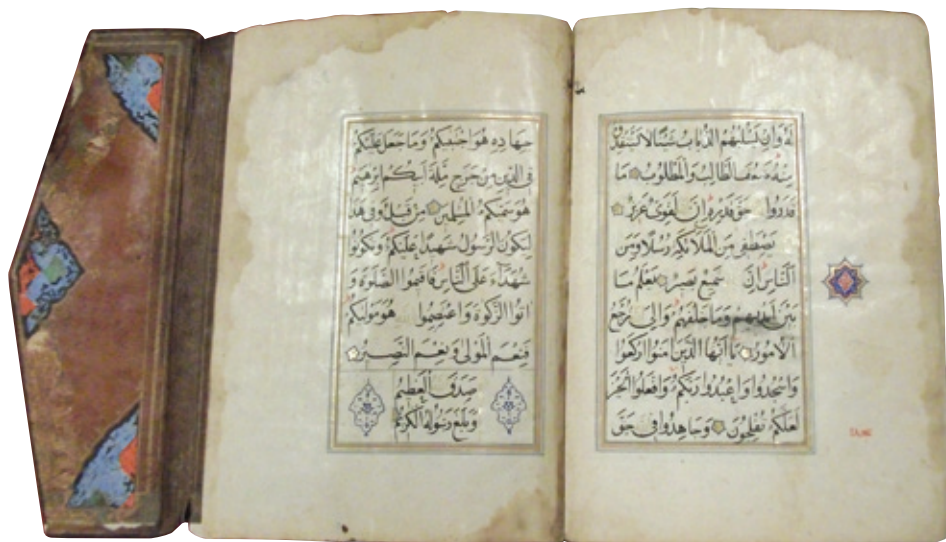 لَهُ وَاِنْ يَسْلُبْهُمُ الذُّبَابُ شَيْئًا لَا يَسْتَنْقِذُ
مِنْهُ ضَعُفَ الطَّالِبُ وَالْمَطْلُوبُ مَا
قَدَرُوا حَقَّ قَدْرِهِ اِنَّ لَقَوِىٌّ عَزِيزٌ
يَصْطَفِى مِنَ الْمَلَائِكَةِ رُسُلًا وَمِنَ
النَّاسِ اِنَّ سَمِيعٌ بَصِيرٌ يَعْلَمُ مَا
بَيْنَ اَيْدِيهِمْ وَمَا خَلْفَهُمْ وَاِلَى تُرْجَعُ
الْاُمُورُ يَا اَيُّهَا الَّذِينَ اٰمَنُوا ارْكَعُوا
وَاسْجُدُوا وَاعْبُدُوا رَبَّكُمْ وَافْعَلُوا الْخَيْرَ
لَعَلَّكُمْ تُفْلِحُونَ وَجَاهِدُوا فِى حَقَّ
جِهَادِهِ هُوَ اجْتَبٰيكُمْ وَمَا جَعَلَ عَلَيْكُمْ
فِى الدِّينِ مِنْ حَرَجٍ مِلَّةَ اَبِيكُمْ اِبْرٰهِيمَ
هُوَ سَمّٰيكُمُ الْمُسْلِمِينَ مِنْ قَبْلُ وَفِى هٰذَا
لِيَكُونَ الرَّسُولُ شَهِيدًا عَلَيْكُمْ وَتَكُونُوا
شُهَدَاءَ عَلَى النَّاسِ فَاَقِيمُوا الصَّلٰوةَ وَ
اٰتُوا الزَّكٰوةَ وَاعْتَصِمُوا هُوَ مَوْلٰيكُمْ
فَنِعْمَ الْمَوْلٰى وَنِعْمَ النَّصِيرُ
صَدَقَ الْعَظِيمُ
وَبَلَّغَ رَسُولُهُ الْكَرِيمُ